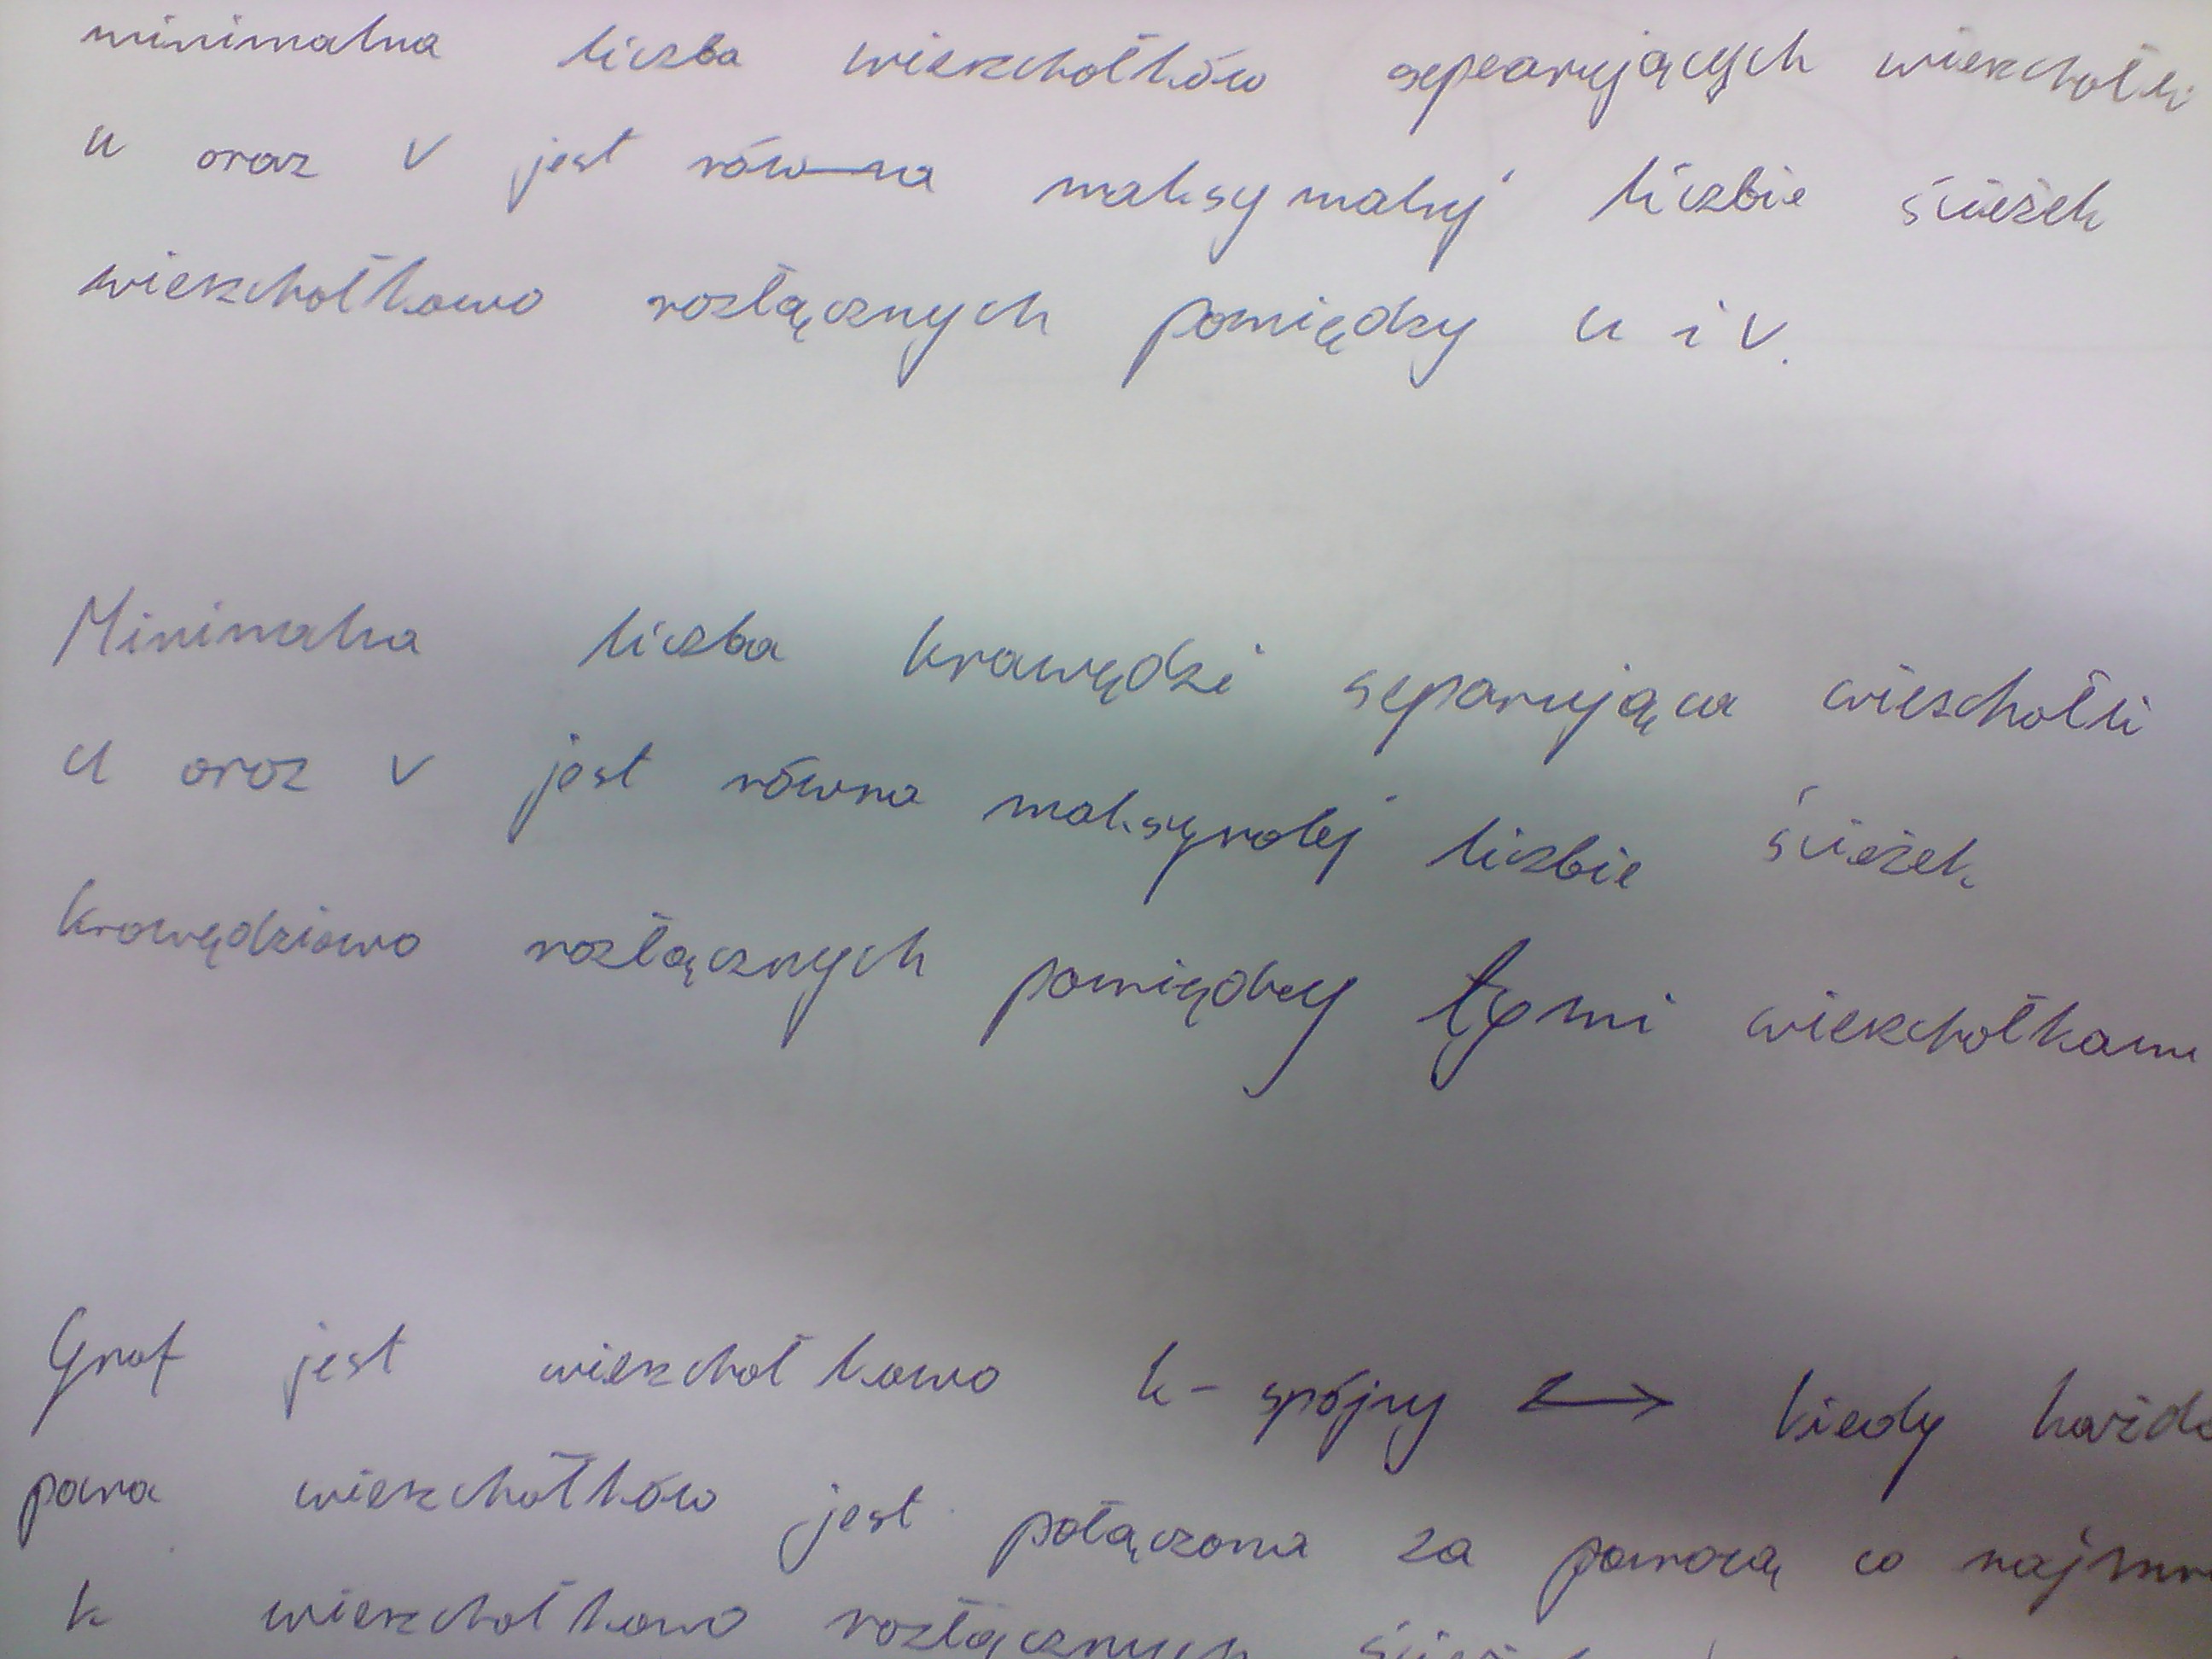 minimalna liczba wierzchołków sepearujących wierzchołki
u oraz v jest równa maksymalnej liczbie ścieżek
wierzchołkowo rozłącznych pomiędzy u i v.
Minimalna liczba krawędzi separująca wierzchołki
u oraz v jest równa maksymalej liczbie ścieżek
krawędziowo rozłącznych pomiędzy tymi wierzchołkami
Graf jest wierzchołkowo k-spójny ⟷ kiedy każda
para wierzchołków jest połączona za pomocą co najmn
k wierzchołkowo rozłącznych